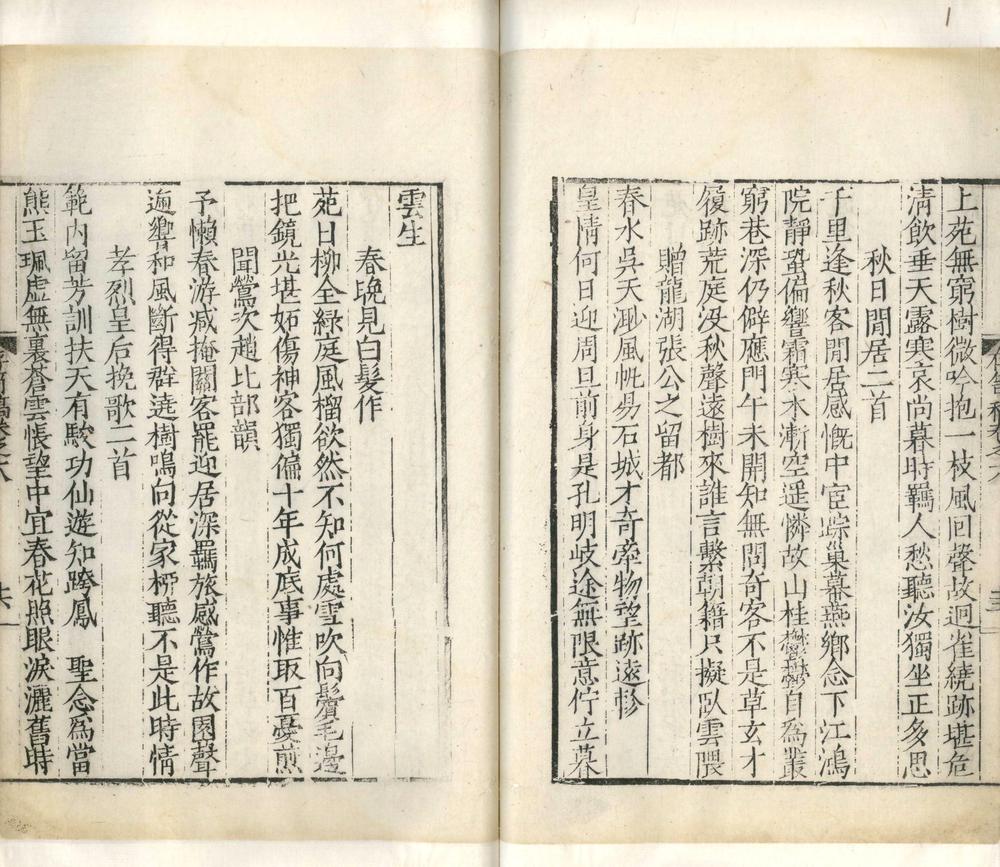 上苑無窮樹微吟抱一枝風回聲故迥雀繞跡堪危
淸飲垂天露寒哀尚暮時羈人愁聽汝獨坐正多思
秋日閒居二首
千里逢秋客閒居感慨中宦踪巢幕燕鄉念下江鴻
院靜蛩偏響霜寒木漸空遥憐故山桂鬱鬱自爲叢
窮巷深仍僻應門午未開知無問奇客不是草玄才
履跡荒庭没秋聲遠樹來誰言繫朝籍只擬臥雲隈
贈龍湖張公之留都
春水吳天渺風帆易石城才奇牽物望跡遠軫
皇情何日迎周旦前身是孔明岐途無限意佇立暮
雲生
春晚見白髮作
苑日柳全綠庭風榴欲然不知何處雪吹向鬢毛邊
把鏡光堪妬傷神客獨偏十年成底事惟取百憂煎
聞鶯次趙比部韻
予懶春游减掩關客罷迎居深羈旅感鶯作故園聲
迥響和風斷得群遶樹鳴向從家柳聽不是此時情
孝烈皇后挽歌二首
範内留芳訓扶天有駿功仙遊知跨鳳 聖念爲當
熊玉珮虛無裏蒼雲悵望中宜春花照眼淚灑舊時